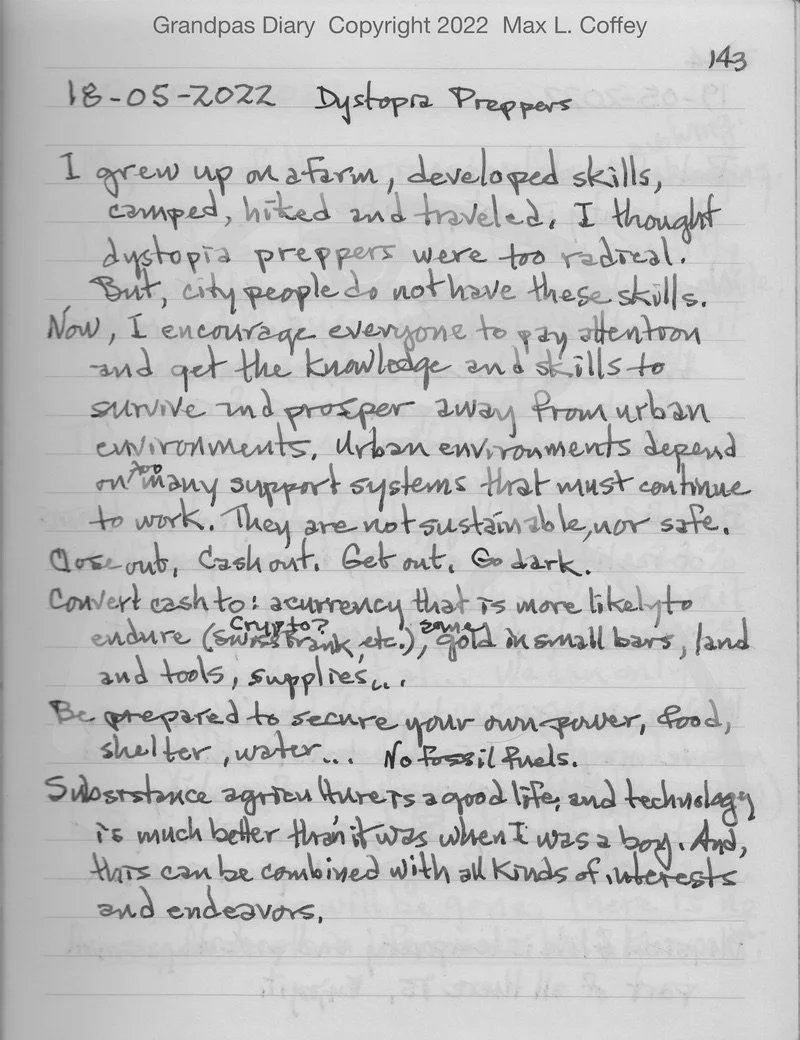 Grandpas Diary Copyright 2022 Max L. Coffey
143
18-05-2022 Dystopia Preppers
I grew up on a farm, developed skills,
camped, hiked and traveled. I thought
dystopia preppers were too radical.
But, city people do not have these skills.
Now, I encourage everyone to pay attention
and get the knowledge and skills to
survive and prosper away from urban
environments. Urban environments depend
on too many support systems that must continue
to work. They are not sustainable, nor safe.
Close out, Cash out. Get out. Go dark.
Convert cash to: a currency that is more likely to
Crypto? some
endure (swiss frank, etc.), gold in small bars, land
and tools, supplies...
Be prepared to secure your own power, food,
shelter, water... No fossil fuels.
Subsistance agriculture is a good life, and technology
is much better than it was when I was a boy. And,
this can be combined with all kinds of interests
and endeavors.